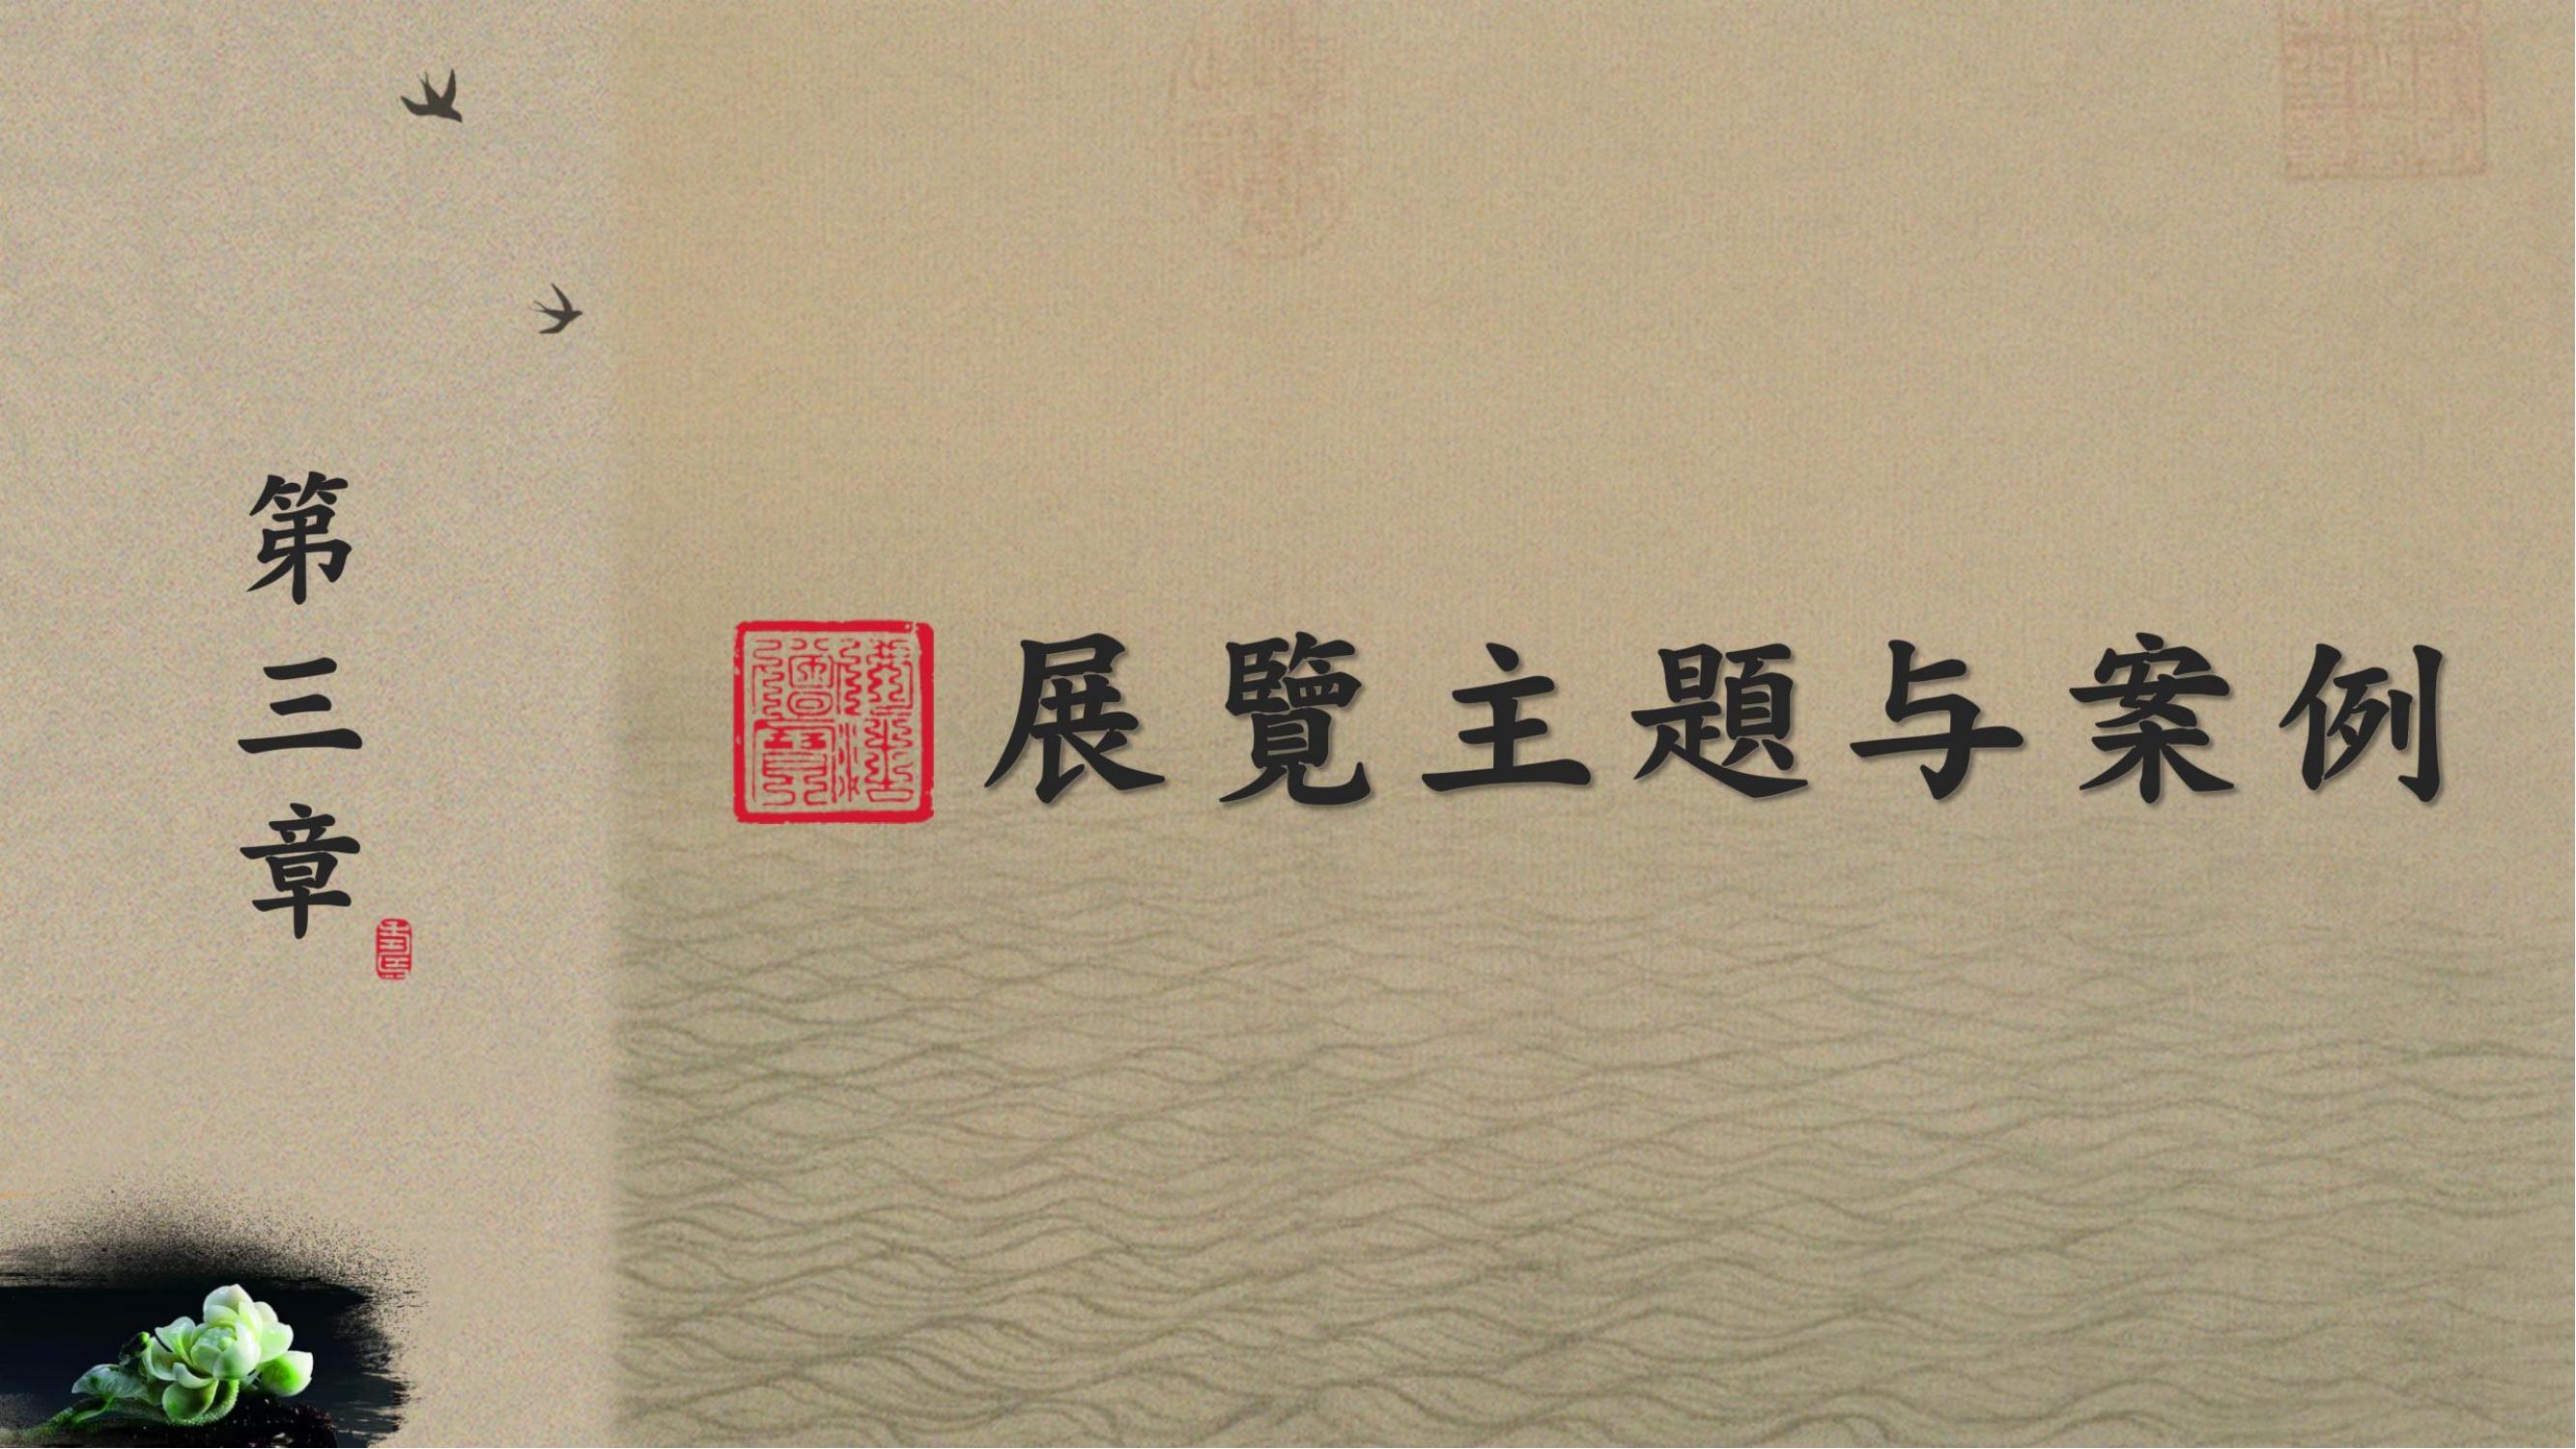 第三章
展覽主題与案例